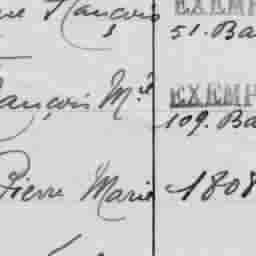 ue François EXEMP
51. Ba
ançois Mie EXEMP
109. Ba
Pierre Marie 1808